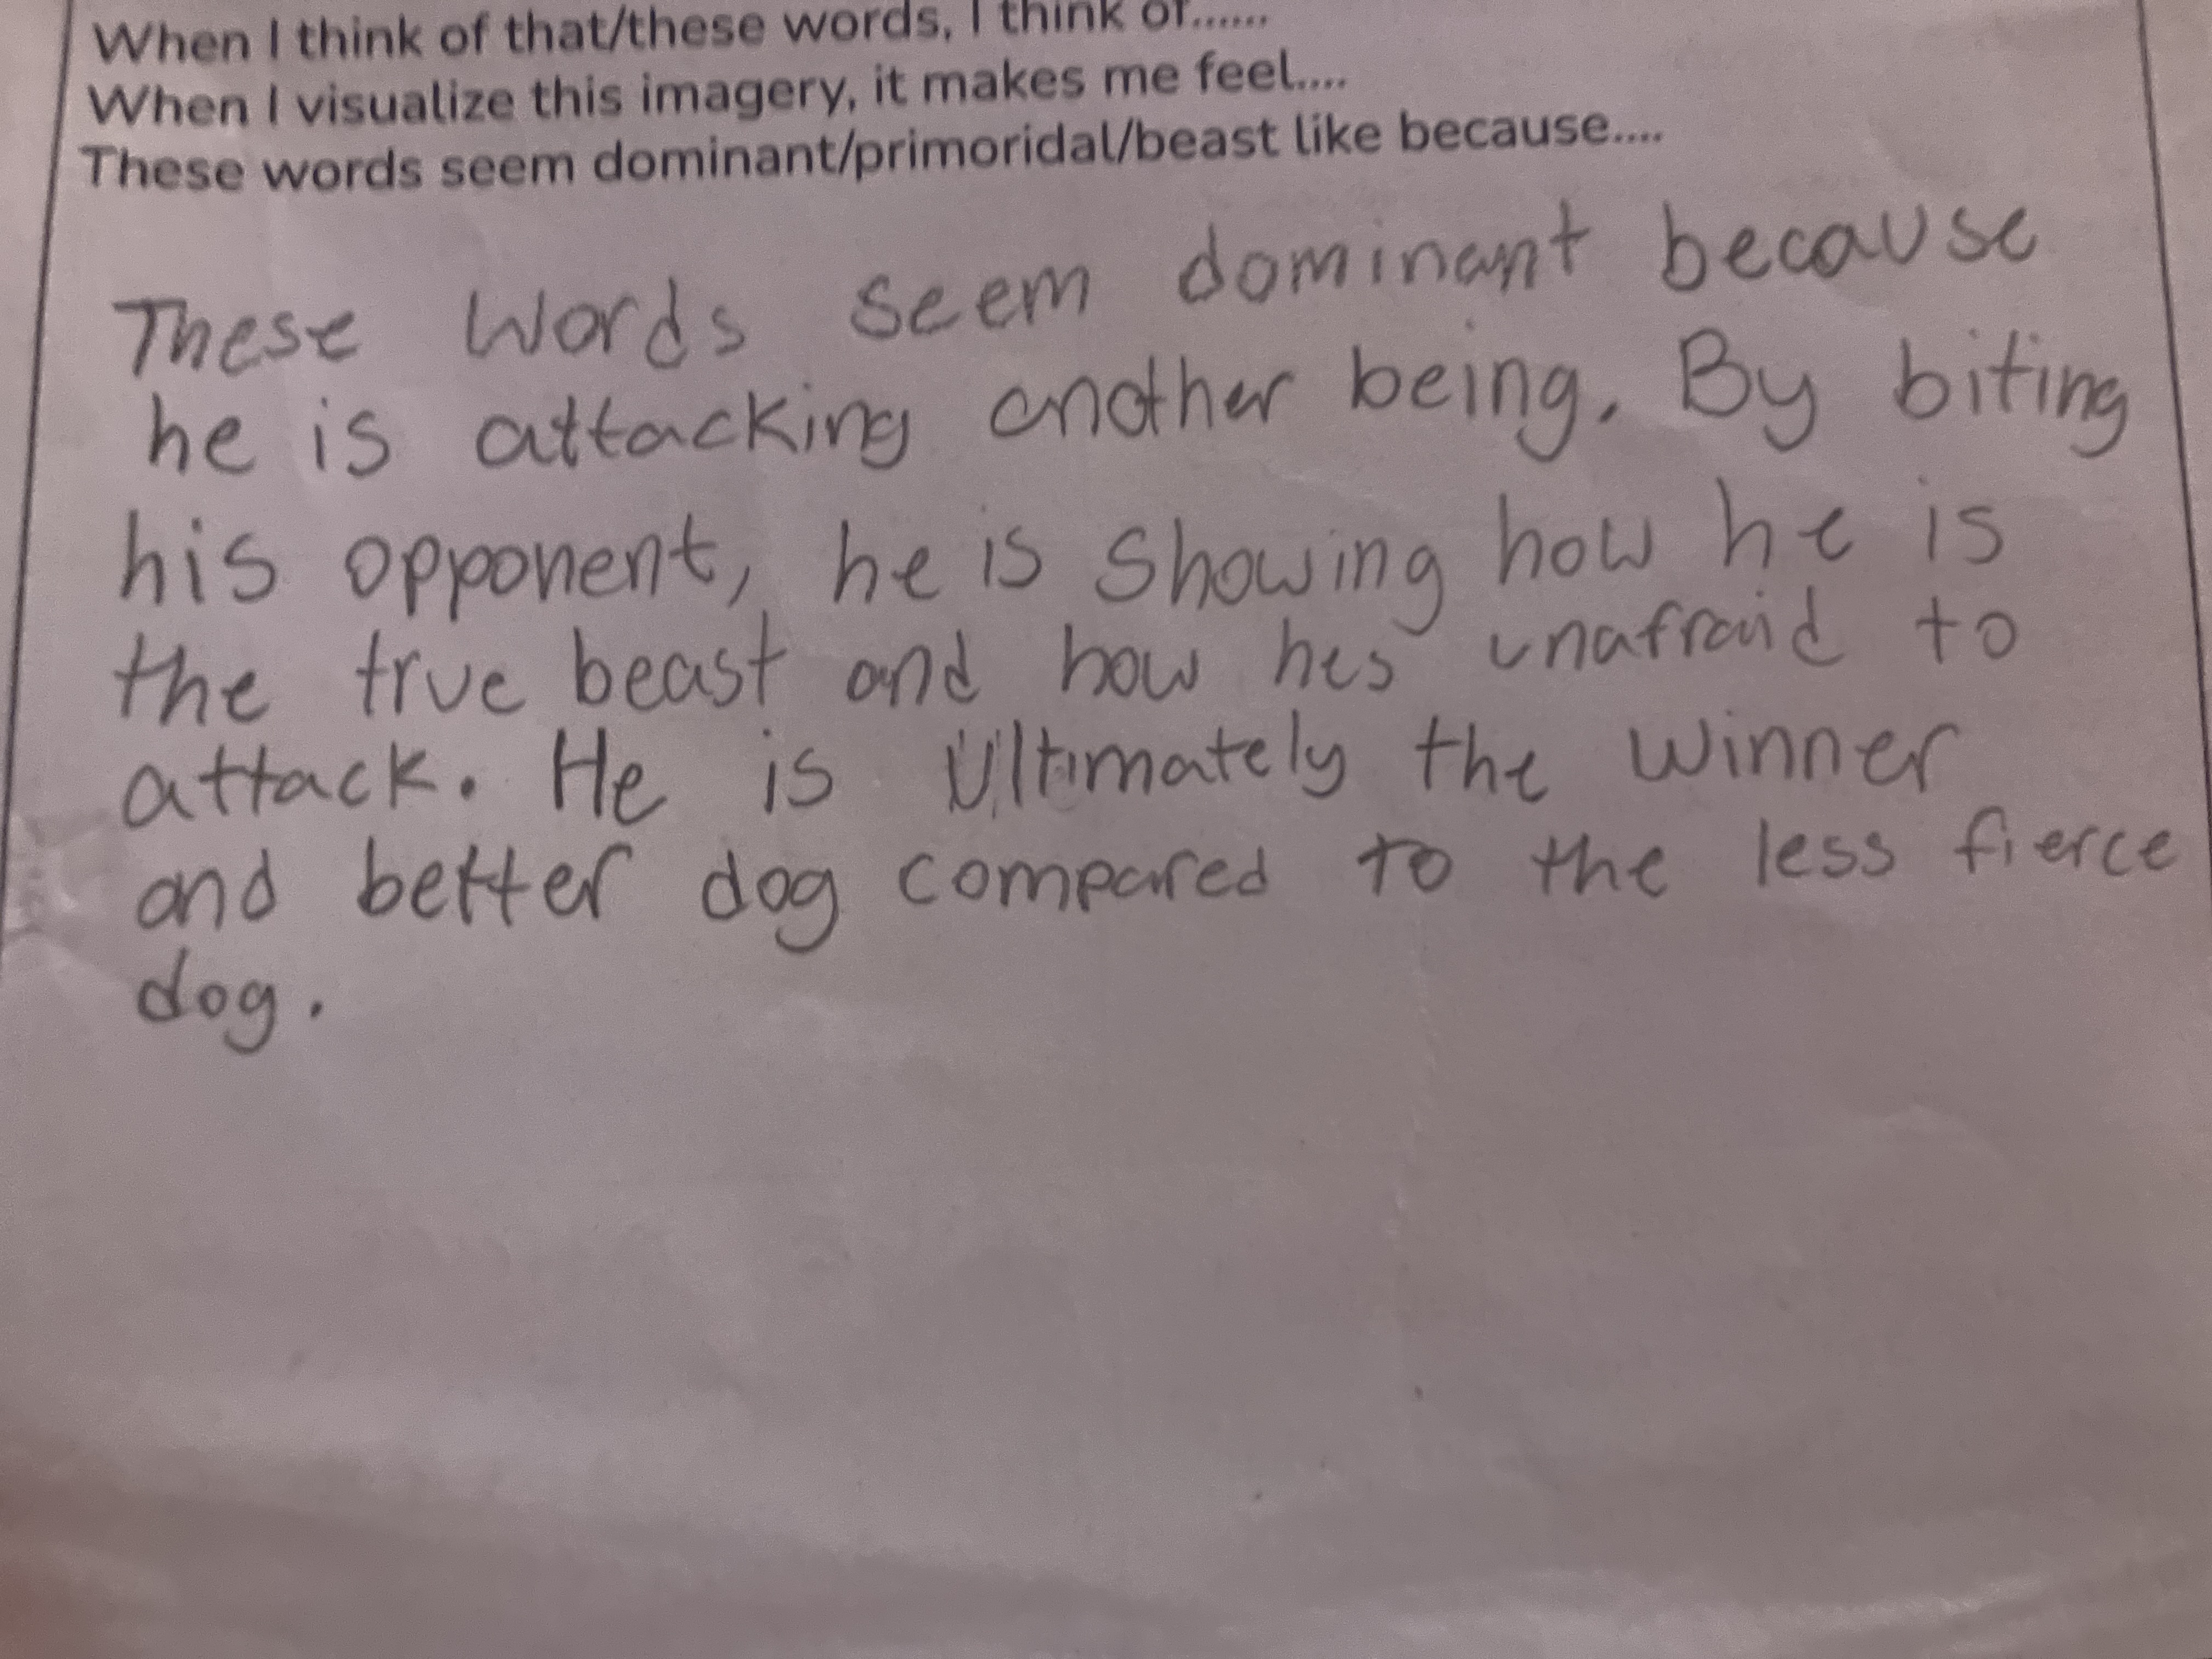 When I think of that/these words, I think of......
When I visualize this imagery, it makes me feel....
These words seem dominant/primoridal/beast like because....
These words seem dominant because
he is attacking another being. By biting
his opponent, he is showing how he is
the true beast and how hes unafraid to
attack. He is Ultimately the winner
and better dog compared to the less fierce
dog.